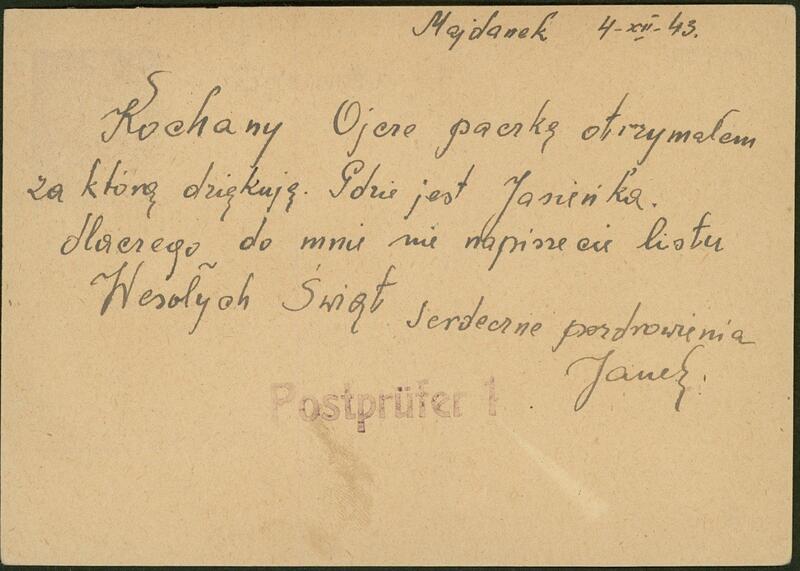 Majdanek 4-XII-43.
Kochany Ojcze paczką otrzymałem
za którą dziękują. Gdzie jest Jasieńka.
dlaczego do mnie nie napiszecie listu
Wesołych Świąt serdeczne pozdrowienia
Janek.
Postprüfer 1